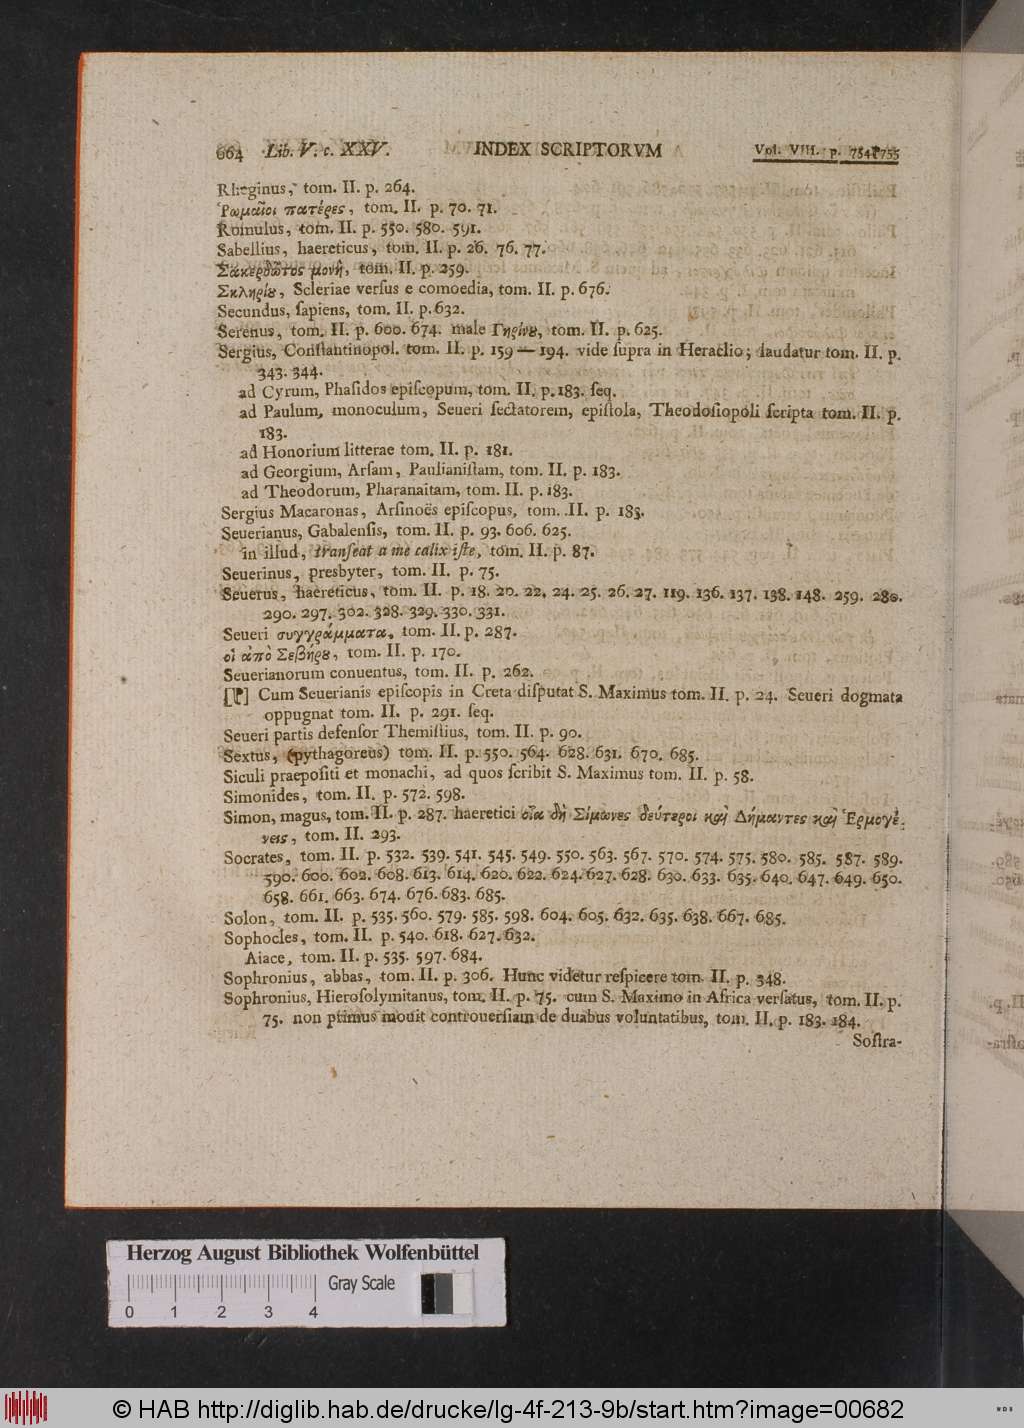 664 Lib. V. c. XXV. INDEX SCRIPTORVM Vol. VIII. p. 754 755
Rheginus, tom. II. p. 264.
Ῥωμαῖοι πατέρες, tom. II. p. 70. 71.
Romulus, tom. II. p. 550. 580. 591.
Sabellius, haereticus, tom. II. p. 26. 76. 77.
Σακερδῶτος μονὴ, tom. II. p. 259.
Σκληρίȣ, Scleriae verſus e comoedia, tom. II. p. 676.
Secundus, ſapiens, tom. II. p. 632.
Serenus, tom. II. p. 600. 674. male Γηρίνȣ, tom. II. p. 625.
Sergius, Conſtantinopol. tom. II. p. 159 — 194. vide ſupra in Heraclio; laudatur tom. II. p.
343. 344.
ad Cyrum, Phaſidos epiſcopum, tom. II. p. 183. ſeq.
ad Paulum, monoculum, Seueri ſectatorem, epiſtola, Theodoſiopoli ſcripta tom. II. p.
183.
ad Honorium litterae tom. II. p. 181.
ad Georgium, Arſam, Paulianiſtam, tom. II. p. 183.
ad Theodorum, Pharanaitam, tom. II. p. 183.
Sergius Macaronas, Arſinoës epiſcopus, tom. II. p. 183.
Seuerianus, Gabalenſis, tom. II. p. 93. 606. 625.
in illud, tranſeat a me calix iſte, tom. II. p. 87.
Seuerinus, presbyter, tom. II. p. 75.
Seuerus, haereticus, tom. II. p. 18. 20. 22. 24. 25. 26. 27. 119. 136. 137. 138. 148. 259. 280.
290. 297. 302. 328. 329. 330. 331.
Seueri συγγράμματα, tom. II. p. 287.
οἱ ἀπὸ Σεβήρȣ, tom. II. p. 170.
Seuerianorum conuentus, tom. II. p. 262.
[¶] Cum Seuerianis epiſcopis in Creta diſputat S. Maximus tom. II. p. 24. Seueri dogmata
oppugnat tom. II. p. 291. ſeq.
Seueri partis defenſor Themiſtius, tom. II. p. 90.
Sextus, (pythagoreus) tom. II. p. 550. 564. 628. 631. 670. 685.
Siculi praepoſiti et monachi, ad quos ſcribit S. Maximus tom. II. p. 58.
Simonides, tom. II. p. 572. 598.
Simon, magus, tom. II. p. 287. haeretici οἷα δὴ Σίμωνες δεύτεροι καὶ Δήμαντες καὶ Ἑρμογέ-
νεις, tom. II. 293.
Socrates, tom. II. p. 532. 539. 541. 545. 549. 550. 563. 567. 570. 574. 575. 580. 585. 587. 589.
590. 600. 602. 608. 613. 614. 620. 622. 624. 627. 628. 630. 633. 635. 640. 647. 649. 650.
658. 661. 663. 674. 676. 683. 685.
Solon, tom. II. p. 535. 560. 579. 585. 598. 604. 605. 632. 635. 638. 667. 685.
Sophocles, tom. II. p. 540. 618. 627. 632.
Aiace, tom. II. p. 535. 597. 684.
Sophronius, abbas, tom. II. p. 306. Hunc videtur reſpicere tom. II. p. 348.
Sophronius, Hieroſolymitanus, tom. II. p. 75. cum S. Maximo in Africa verſatus, tom. II. p.
75. non primus mouit controuerſiam de duabus voluntatibus, tom. II. p. 183. 184.
Soſtra-
Herzog August Bibliothek Wolfenbüttel
Gray Scale
0 1 2 3 4
© HAB http://diglib.hab.de/drucke/lg-4f-213-9b/start.htm?image=00682